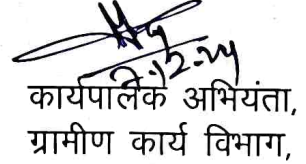 7.12.24
कार्यपालक अभियंता,
ग्रामीण कार्य विभाग,